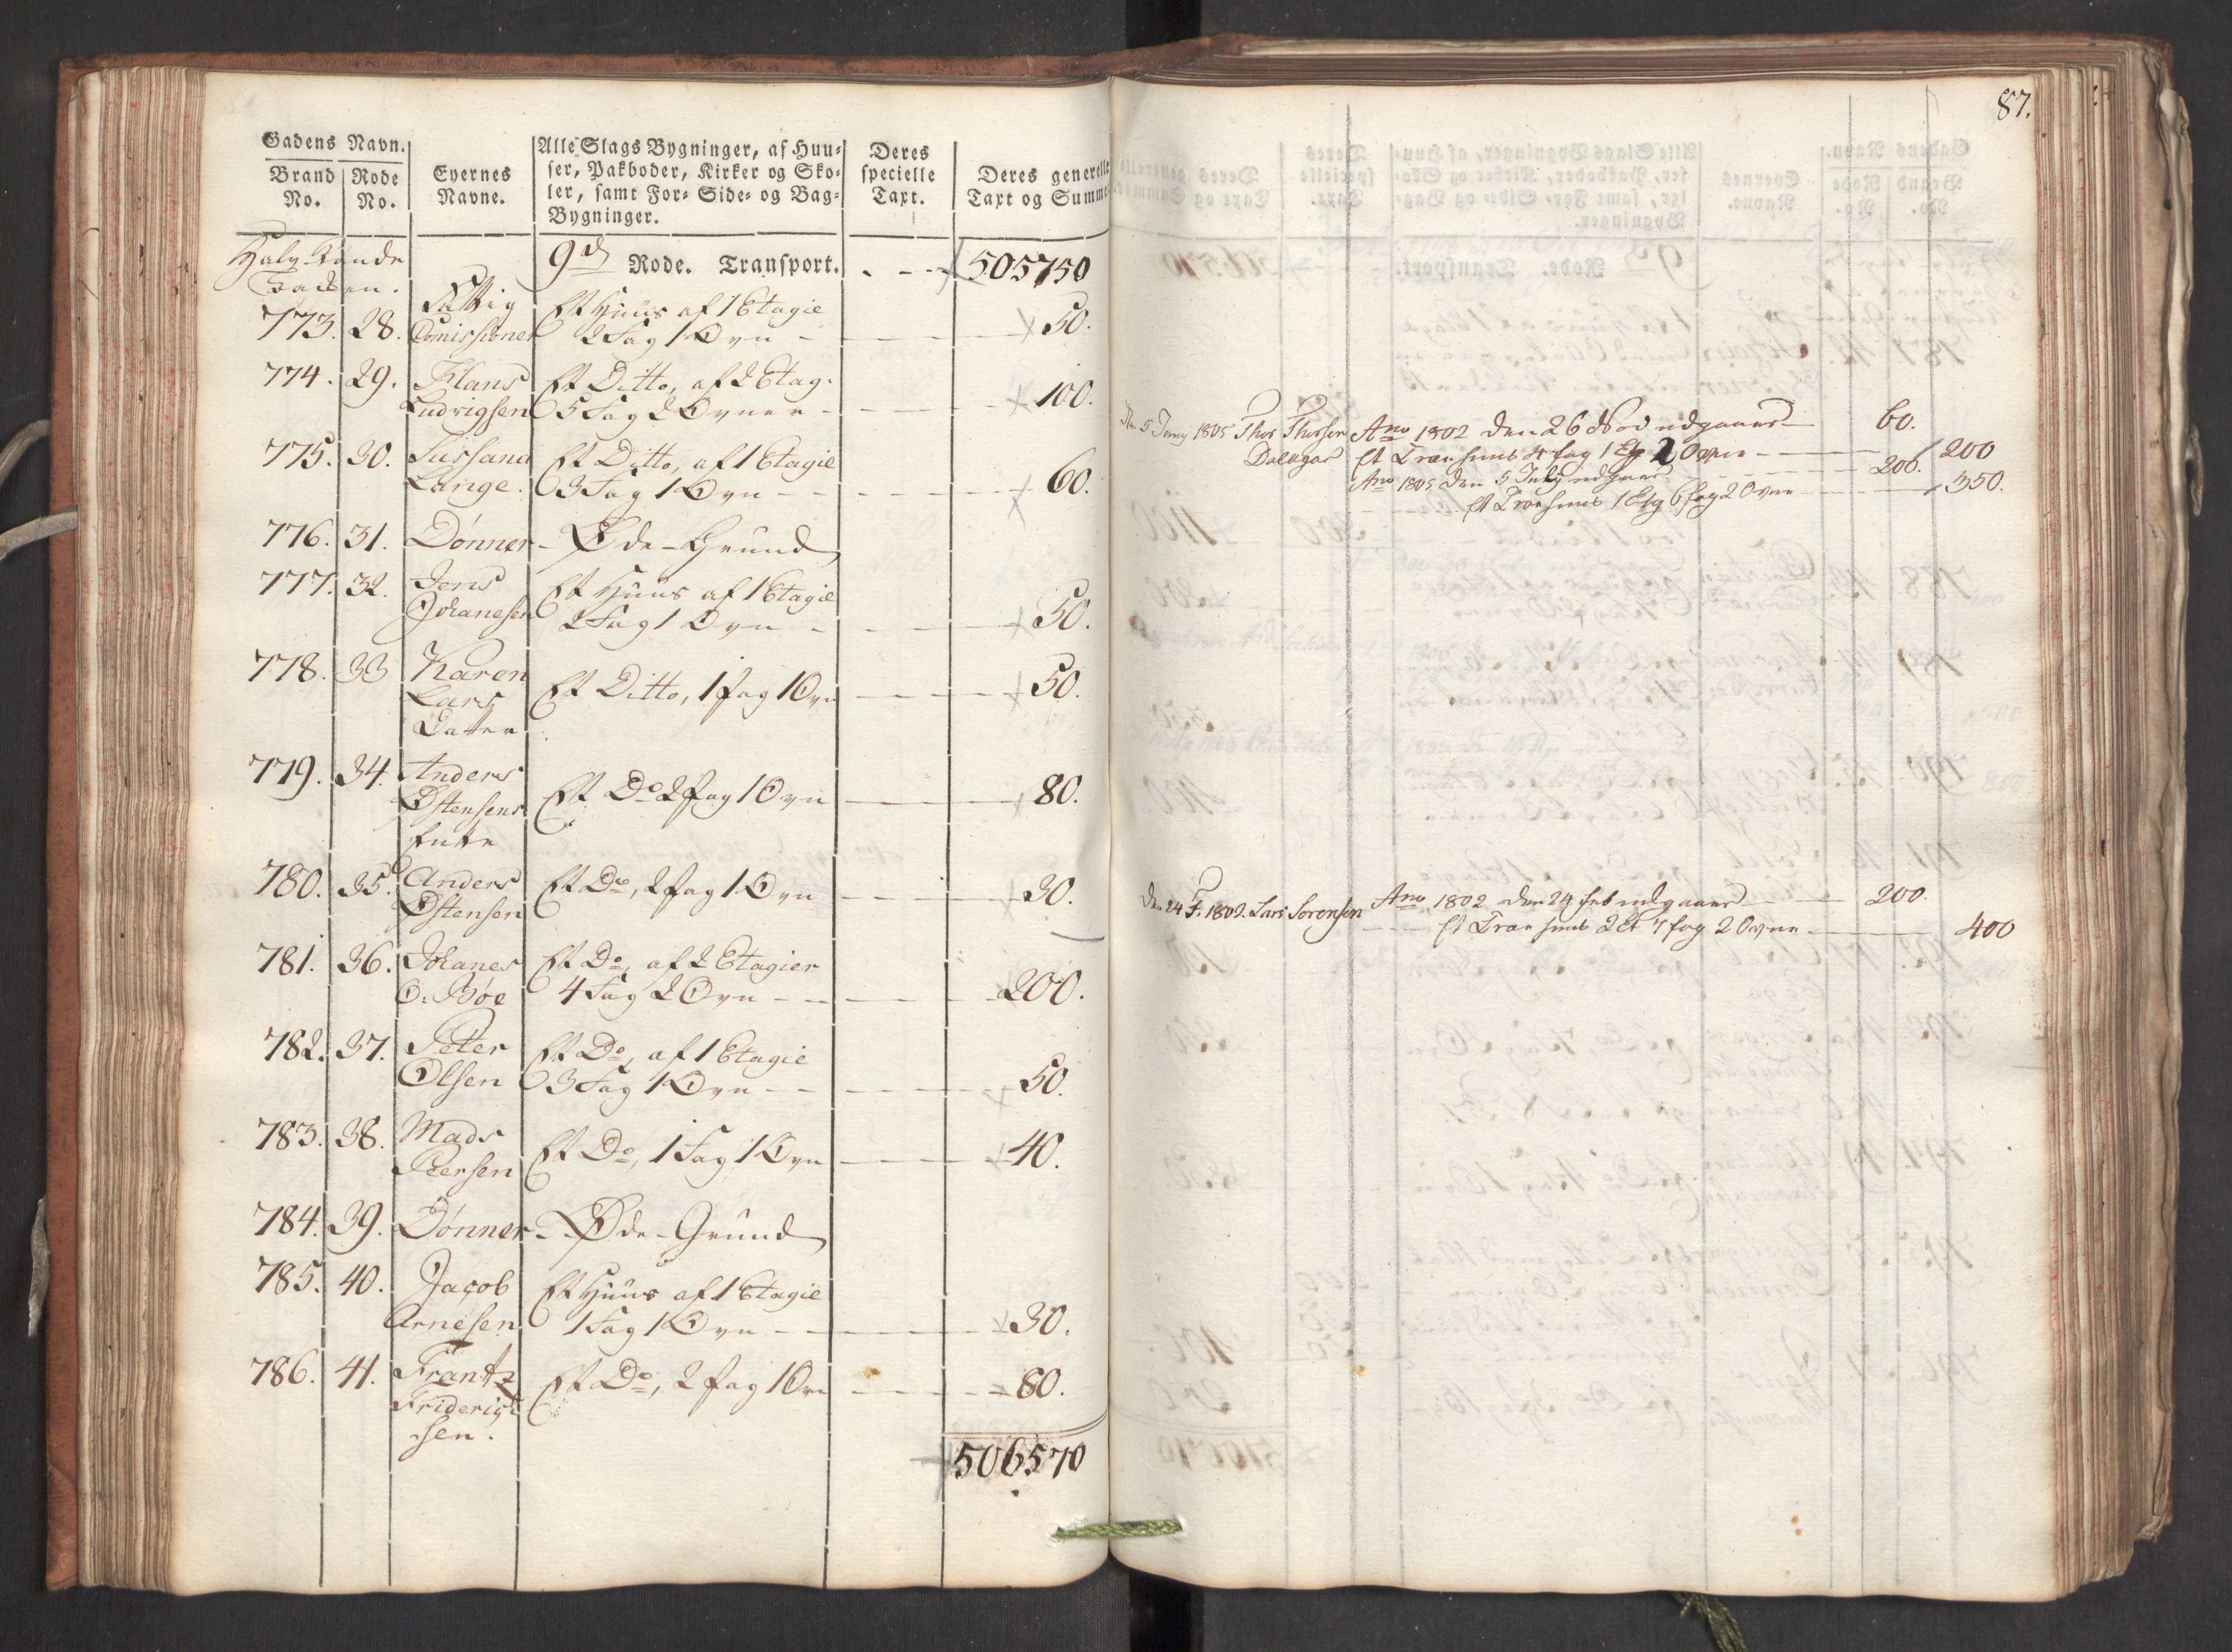 Gadens Navn.
Brand No.
Rode No.
Eyernes Navne.
Alle Slags Bygninger, af Huu-
ser, Pakboder, Kirker og Sko-
ler, samt For- Side- og Bag-
Bygninger.
Deres specielle Taxt.
Deres generelle
Taxt og Summe
9d Rode. Transport. 505750
773. 28. Fattig Et Huus af 1 Etagie
Comissionen 2 Fag 1 Ovn 50.
774. 29. Hans Et Ditto, af 2 Etag.
Ludvigsen 5 Fag 2 Ovner 100.
775. 30. Sussana Et Ditto, af 1 Etagie
Lange. 3 Fag 1 Ovn 60.
776. 31. Dønner Øde-Grund
777. 32. Jens Et Huus af 1 Etagie
Johanesen 2 Fag 1 Ovn 50.
778. 33 Karen
Lars Et Ditto, 1 fag 1 Ovn 50.
Datter
779. 34. Anders
Østensens Et Do 2 fag 1 Ovn 80.
780. 35. Anders Et Do, 2 fag 1 Ovn 30.
Østensen
781. 36. Johanes Et Do, af 2 Etagier
O: Bøe 4 Fag 2 Ovn 200.
782. 37. Peter Et Do, af 1 Etagie
Olsen 3 Fag 1 Ovn 50.
783. 38. Mads Et Do, 1 Fag 1 Ovn 40.
Peersen
784. 39. Dønner Øde-Grund
785. 40. Jacob Et Huus af 1 Etagie
Arnesen 1 Fag 1 Ovn 30.
786. 41. Frantz Et Do, 2 fag 1 Ovn 80.
Friderich
sen.
506570
87.
Den 5 Juny 1805 Thos Thorsen Ano 1802 den 26 Nov udgaaer 60.
Dalegar Et Træe huus 4 fag 1 Etg 2 Ovne 200
Ano 1805 den 5 July udgaaer 200.
Et Træehuus 1 Etg 6 fag 2 Ovne 350.
Den 24 F. 1802. Lars Sørensen Ano 1802 den 24 feb udgaaer 200.
Et Træe huus 2 Et 7 fag 2 Ovne 400